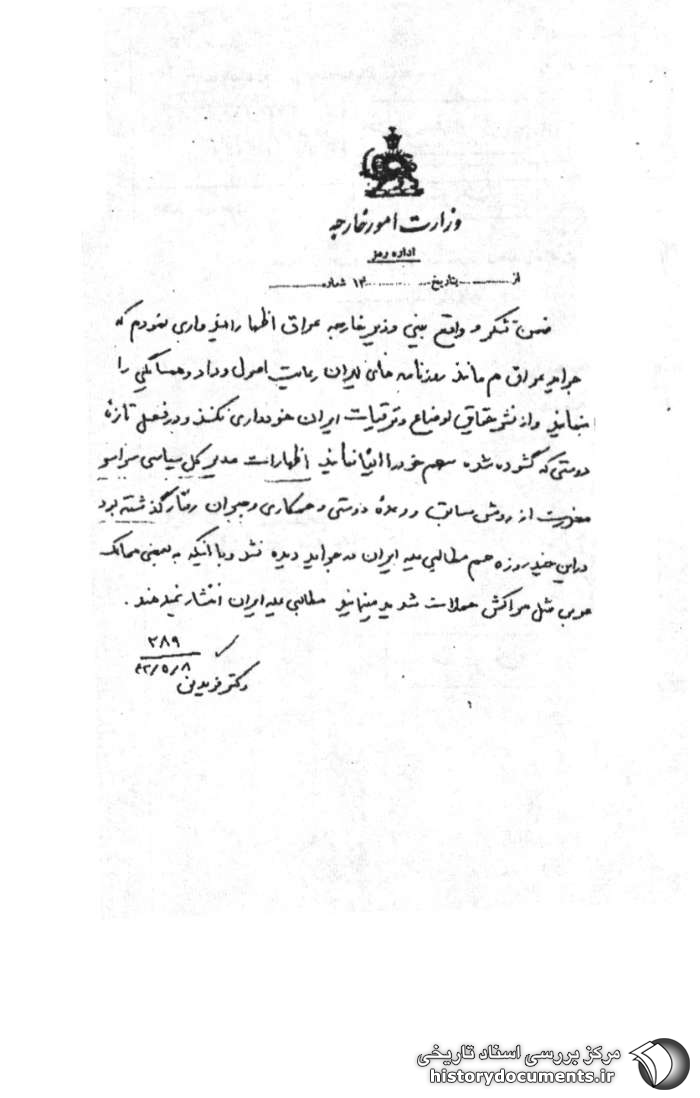 وزارت امور خارجه
اداره رمز
از ............ بتاریخ ............ ۱۳ شماره ............
ضمن تشکر و واقع بینی وزیر خارجه عراق اظهار امیدواری نمودم که
جراید عراق هم مانند روزنامه های ایران رعایت اصول وداد و همسایگی را
بنمایند و از نشر حقایق اوضاع و ترقیات ایران خودداری نکنند و در فصل تازه
دوستی که گشوده شده سهم خود را ایفا نمایند اظهارات مدیر کل سیاسی سراسر
معذرت از روش سابق و وعدۀ دوستی و همکاری و جبران رفتار گذشته بود
در این چند روزه هم مطالبی علیه ایران در جراید دیده نشد و با آنکه به بعضی ممالک
عربی مثل مراکش حملات شدید مینمایند مطالبی علیه ایران انتشار نمیدهند .
۲۸۹
۴۲/۵/۸
دکتر فریدنی
مرکز بررسی اسناد تاریخی
historydocuments.ir